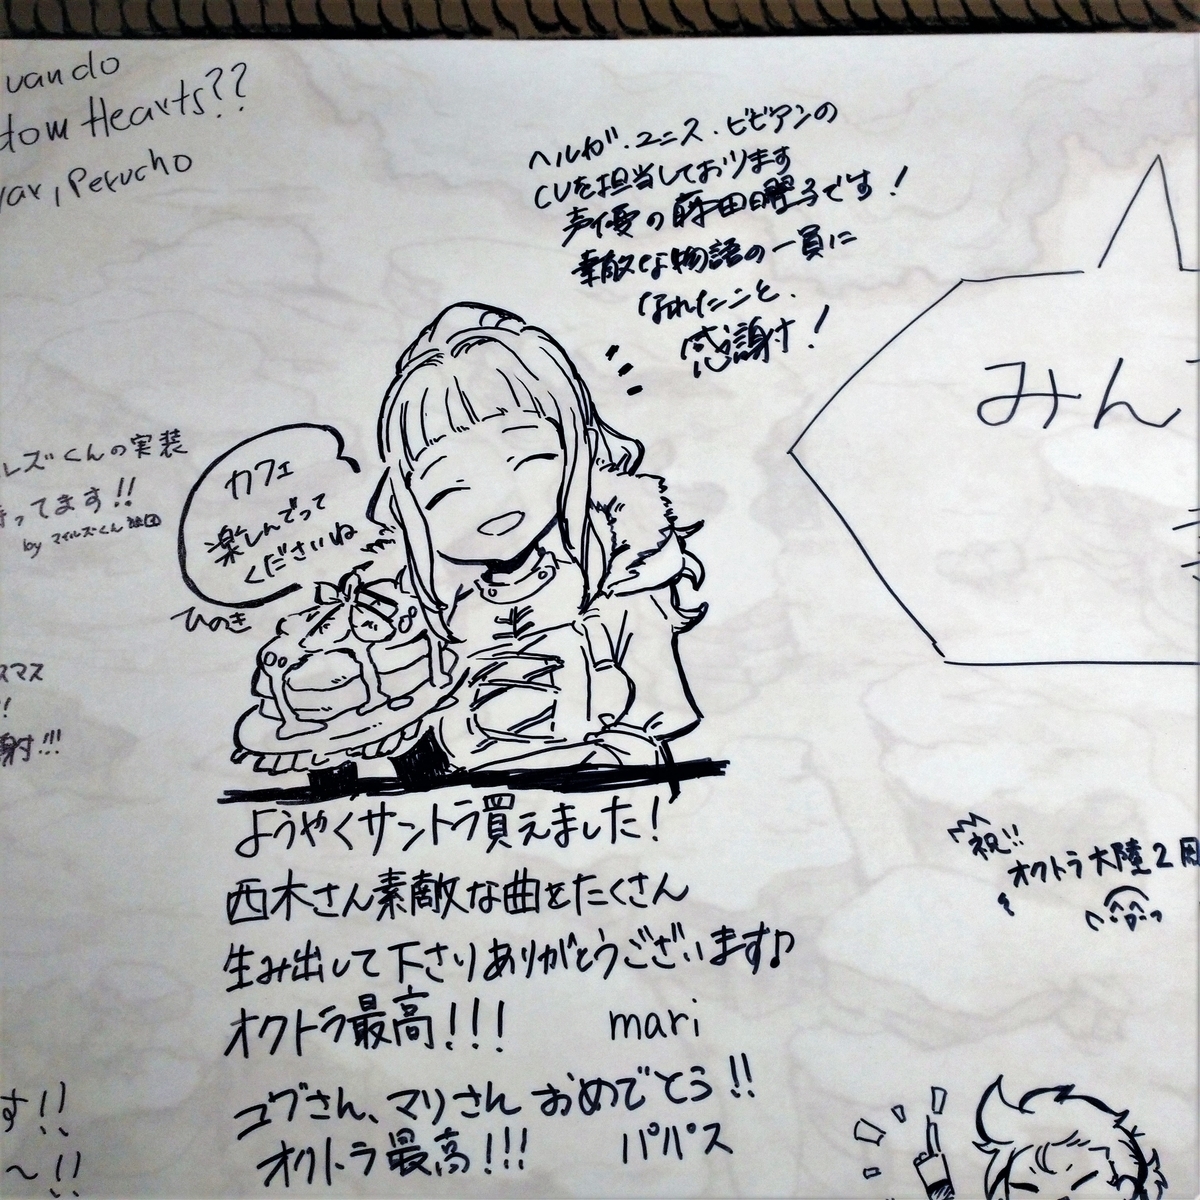 uando
dom Hearts??
var, Perucho
ヘルガ・ユニス・ビビアンの
CVを担当しております
声優の藤田曜子です!
素敵な物語の一員に
なれたこと、
感謝!
みん
レズくんの実装
待ってます!!
by マイルズくん
カフェ
楽しんでって
くださいね
ひのき
スマス
!
謝!!!
ようやくサントラ買えました!
西木さん素敵な曲をたくさん
生み出して下さりありがとうございます♪
オクトラ最高!!!
mari
祝!!
オクトラ大陸2周
ユウさん、マリさん おめでとう!!
オクトラ最高!!!
パパス
す!!
〜!!